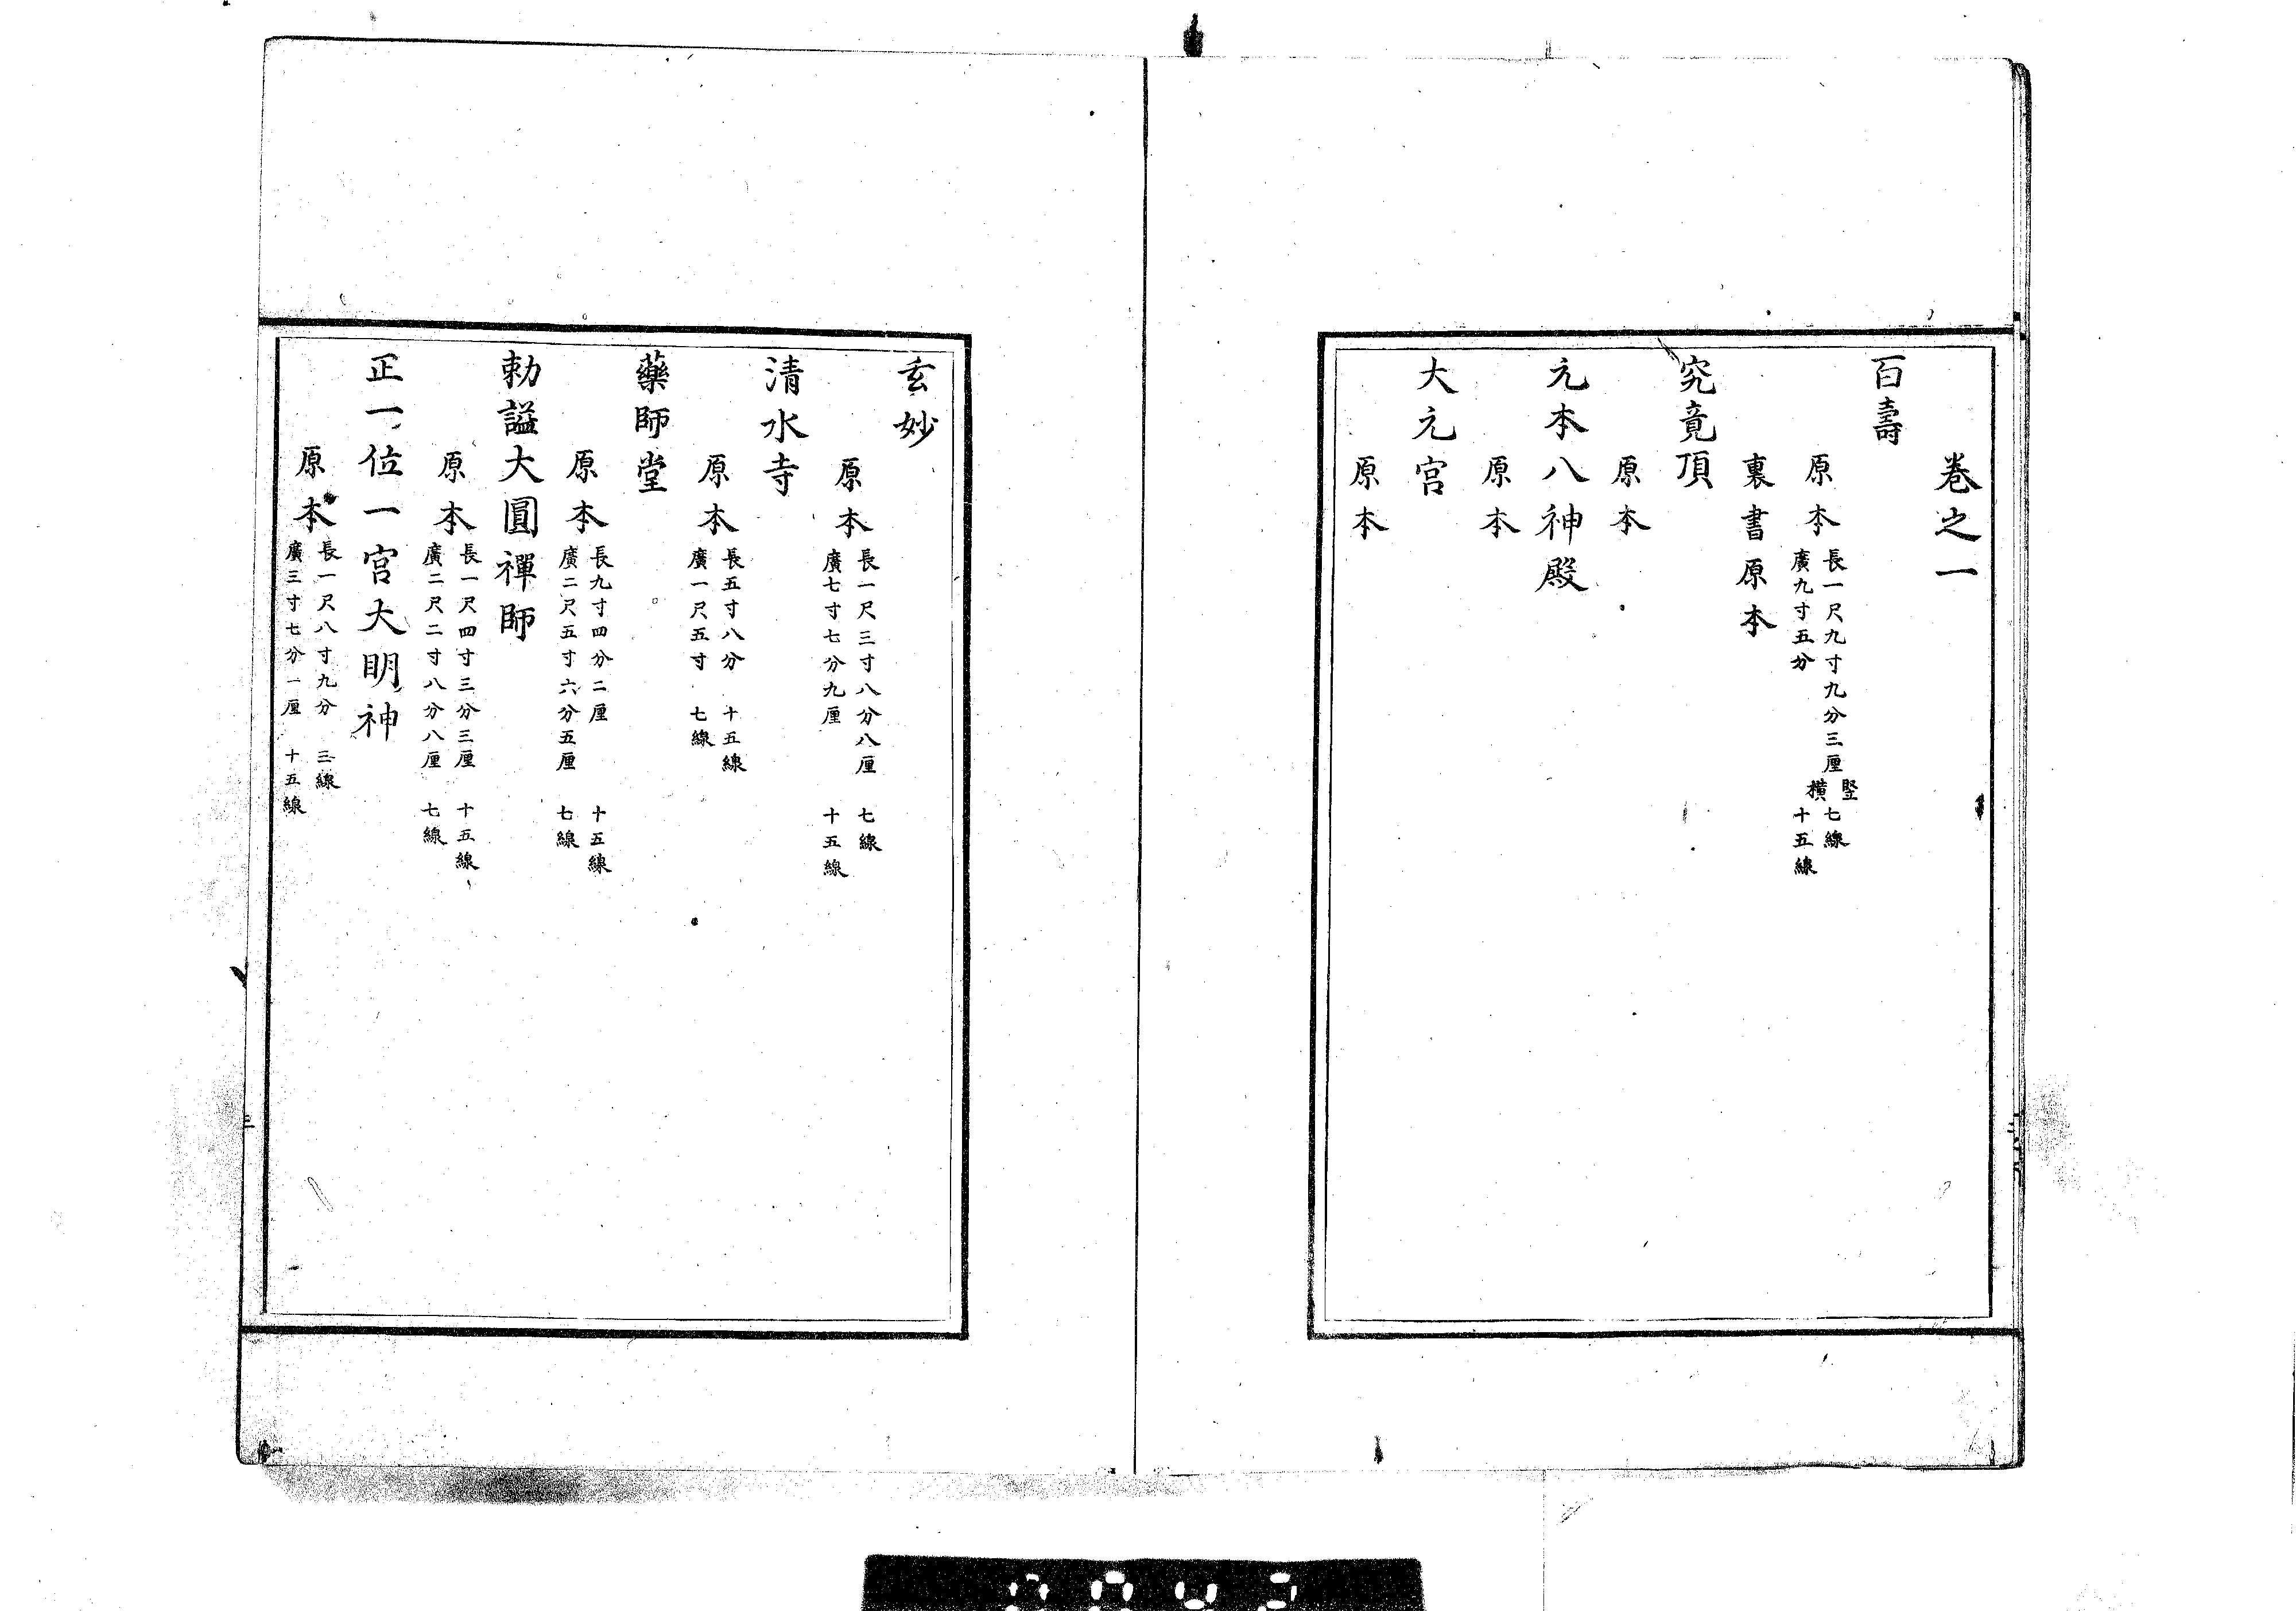 卷之一
百壽
原本 長一尺九寸九分三厘 竪 七線
廣九寸五分 横 十五線
裏書原本
究竟頂
原本
元本八神殿
原本
大元宮
原本
玄妙
原本 長一尺三寸八分八厘 七線
廣七寸七分九厘 十五線
清水寺
原本 長五寸八分 十五線
廣一尺五寸 七線
藥師堂
原本 長九寸四分二厘 十五線
廣二尺五寸六分五厘 七線
勅謚大圓禪師
原本 長一尺四寸三分三厘 十五線
廣二尺二寸八分八厘 七線
正一位一宮大明神
原本 長一尺八寸九分 三線
廣三寸七分一厘 十五線